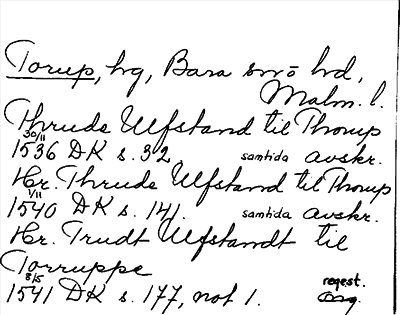 Torup, hg, Bara sn o hd,
Malm. l.
Thrude Ulfstand til Thorup
30/11
1536 DK s. 32 samtida avskr.
Hr. Thrude Ulfstand til Thorup
1/11
1540 DK s. 141. samtida avskr.
Hr. Trudt Ulfstandt til
Torruppe
8/5 regest.
1541 DK s. 177, not 1.